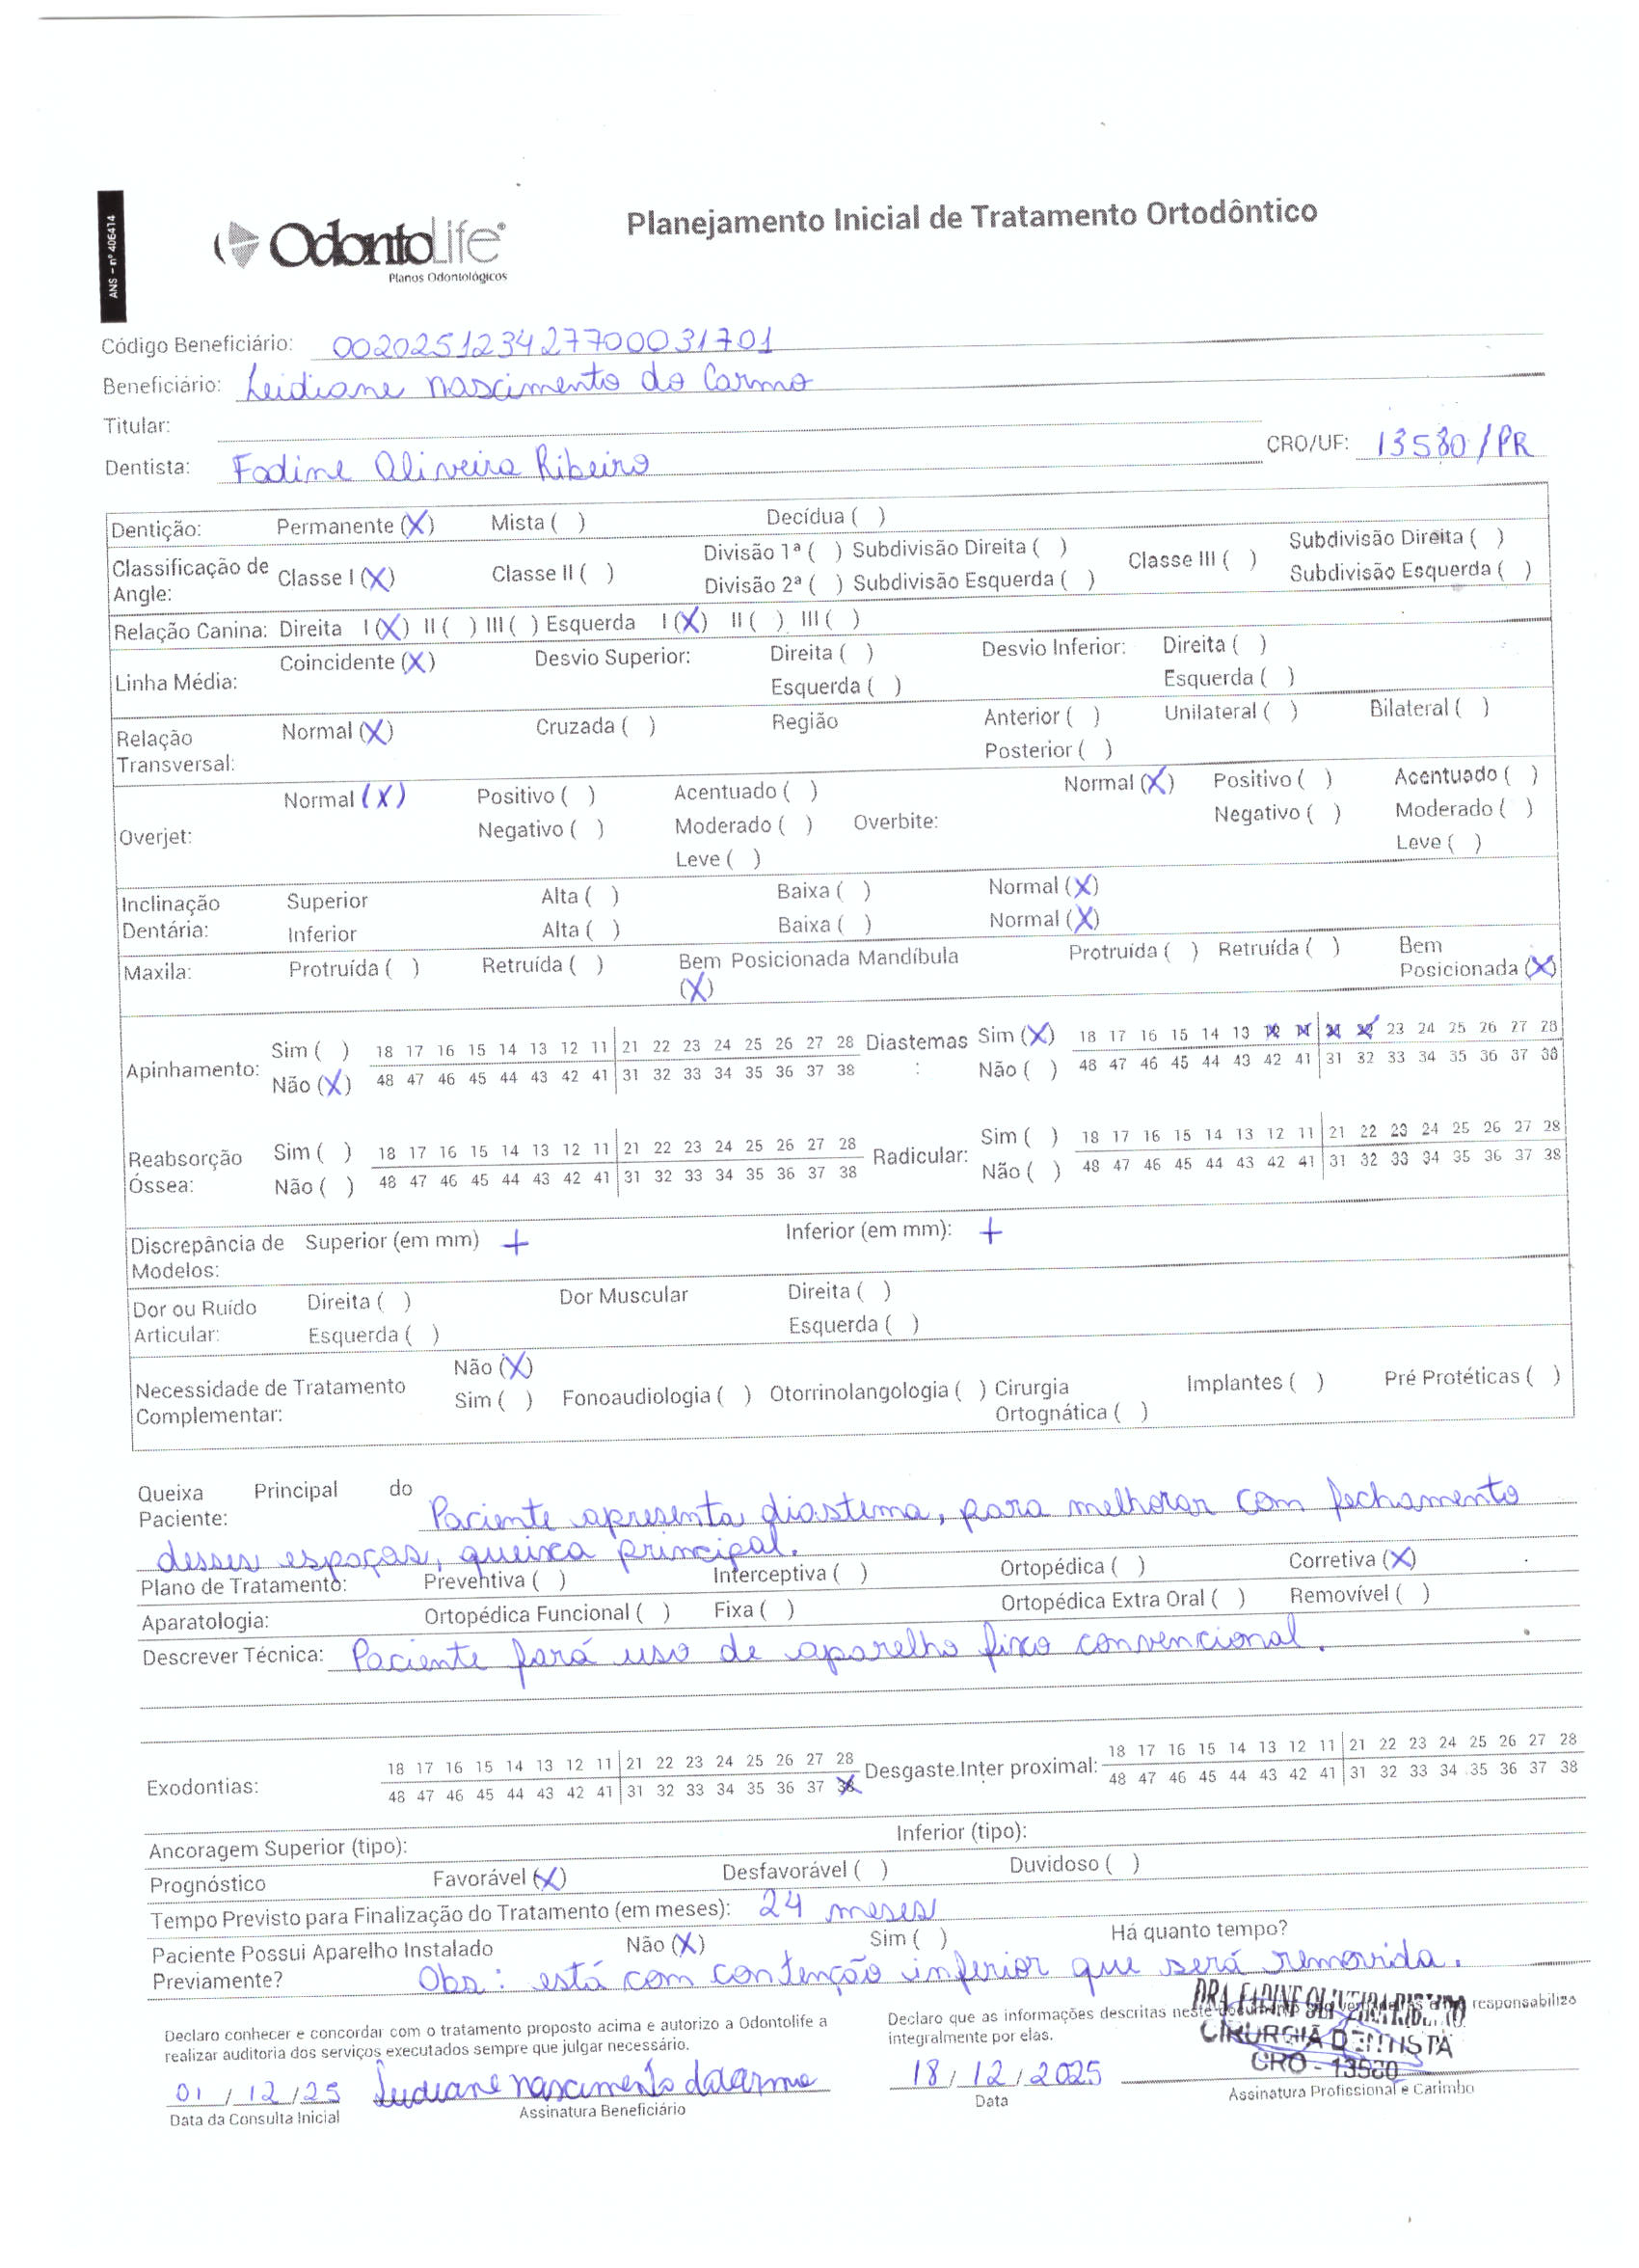 ANS - nº 406414
OdontoLife®
Planos Odontológicos
Planejamento Inicial de Tratamento Ortodôntico
Código Beneficiário: 002025123427700031701
Beneficiário: Leidiane nascimento do Carmo
Titular:
Dentista: Fadine Oliveira Ribeiro CRO/UF: 13580/PR
Dentição: Permanente (X) Mista ( ) Decídua ( )
Classificação de Angle: Classe I (X) Classe II ( ) Divisão 1ª ( ) Subdivisão Direita ( ) Classe III ( ) Subdivisão Direita ( )
Divisão 2ª ( ) Subdivisão Esquerda ( ) Subdivisão Esquerda ( )
Relação Canina: Direita I (X) II ( ) III ( ) Esquerda I (X) II ( ) III ( )
Linha Média: Coincidente (X) Desvio Superior: Direita ( ) Desvio Inferior: Direita ( )
Esquerda ( ) Esquerda ( )
Relação Transversal: Normal (X) Cruzada ( ) Região Anterior ( ) Unilateral ( ) Bilateral ( )
Posterior ( )
Overjet: Normal (X) Positivo ( ) Acentuado ( ) Overbite: Normal (X) Positivo ( ) Acentuado ( )
Negativo ( ) Moderado ( ) Negativo ( ) Moderado ( )
Leve ( ) Leve ( )
Inclinação Dentária: Superior Alta ( ) Baixa ( ) Normal (X)
Inferior Alta ( ) Baixa ( ) Normal (X)
Maxila: Protruída ( ) Retruída ( ) Bem Posicionada (X) Mandíbula Protruída ( ) Retruída ( ) Bem Posicionada (X)
Apinhamento: Sim ( ) 18 17 16 15 14 13 12 11 21 22 23 24 25 26 27 28 Diastemas: Sim (X) 18 17 16 15 14 13 12 11 21 22 23 24 25 26 27 28
Não (X) 48 47 46 45 44 43 42 41 31 32 33 34 35 36 37 38 Não ( ) 48 47 46 45 44 43 42 41 31 32 33 34 35 36 37 38
Reabsorção Óssea: Sim ( ) 18 17 16 15 14 13 12 11 21 22 23 24 25 26 27 28 Radicular: Sim ( ) 18 17 16 15 14 13 12 11 21 22 23 24 25 26 27 28
Não ( ) 48 47 46 45 44 43 42 41 31 32 33 34 35 36 37 38 Não ( ) 48 47 46 45 44 43 42 41 31 32 33 34 35 36 37 38
Discrepância de Modelos: Superior (em mm) + Inferior (em mm): +
Dor ou Ruído Articular: Direita ( ) Dor Muscular Direita ( )
Esquerda ( ) Esquerda ( )
Necessidade de Tratamento Complementar: Não (X)
Sim ( ) Fonoaudiologia ( ) Otorrinolangologia ( ) Cirurgia Ortognática ( ) Implantes ( ) Pré Protéticas ( )
Queixa Principal do Paciente: Paciente apresenta diastema, para melhorar com fechamento
desses espaças, queixa principal.
Plano de Tratamento: Preventiva ( ) Interceptiva ( ) Ortopédica ( ) Corretiva (X)
Aparatologia: Ortopédica Funcional ( ) Fixa ( ) Ortopédica Extra Oral ( ) Removível ( )
Descrever Técnica: Paciente fará uso de aparelho fixo convencional.
Exodontias: 18 17 16 15 14 13 12 11 21 22 23 24 25 26 27 28 Desgaste Inter proximal: 18 17 16 15 14 13 12 11 21 22 23 24 25 26 27 28
48 47 46 45 44 43 42 41 31 32 33 34 35 36 37 38 48 47 46 45 44 43 42 41 31 32 33 34 35 36 37 38
Ancoragem Superior (tipo): Inferior (tipo):
Prognóstico Favorável (X) Desfavorável ( ) Duvidoso ( )
Tempo Previsto para Finalização do Tratamento (em meses): 24 meses
Paciente Possui Aparelho Instalado Previamente? Não (X) Sim ( ) Há quanto tempo?
Obs: está com contenção inferior que será removida.
Declaro conhecer e concordar com o tratamento proposto acima e autorizo a Odontolife a
realizar auditoria dos serviços executados sempre que julgar necessário.
01/12/25 Leidiane nascimento do Carmo
Data da Consulta Inicial Assinatura Beneficiário
Declaro que as informações descritas neste documento responsabilizo
integralmente por elas.
DRA. FADINE OLIVEIRA RIBEIRO
CIRURGIÃ DENTISTA
CRO - 13580
18/12/2025
Data Assinatura Profissional e Carimbo